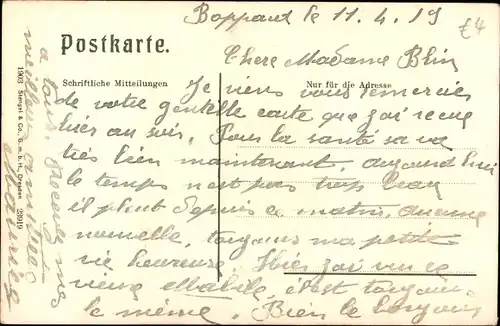 Boppard le 11.4.19
£4
Postkarte.
Chere Madame Blin
Schriftliche Mitteilungen
Nur für die Adresse
Je viens vous remercier
de votre gentille carte que j'ai reçue
hier au soir. Pour la santé sa va
très bien maintenant, aujourd'hui
le temps n'est pas trop beau
il pleut depuis ce matin, aucune
nouvelle, toujours ma petite
vie heureuse. Hier j'ai vu ce
vieux c'est toujours
le même. Bien le bonjour
a tous, recevez mes
meilleures amitiés
Maurice
1903 Stengel & Co., G. m. b. H., Dresden 23919